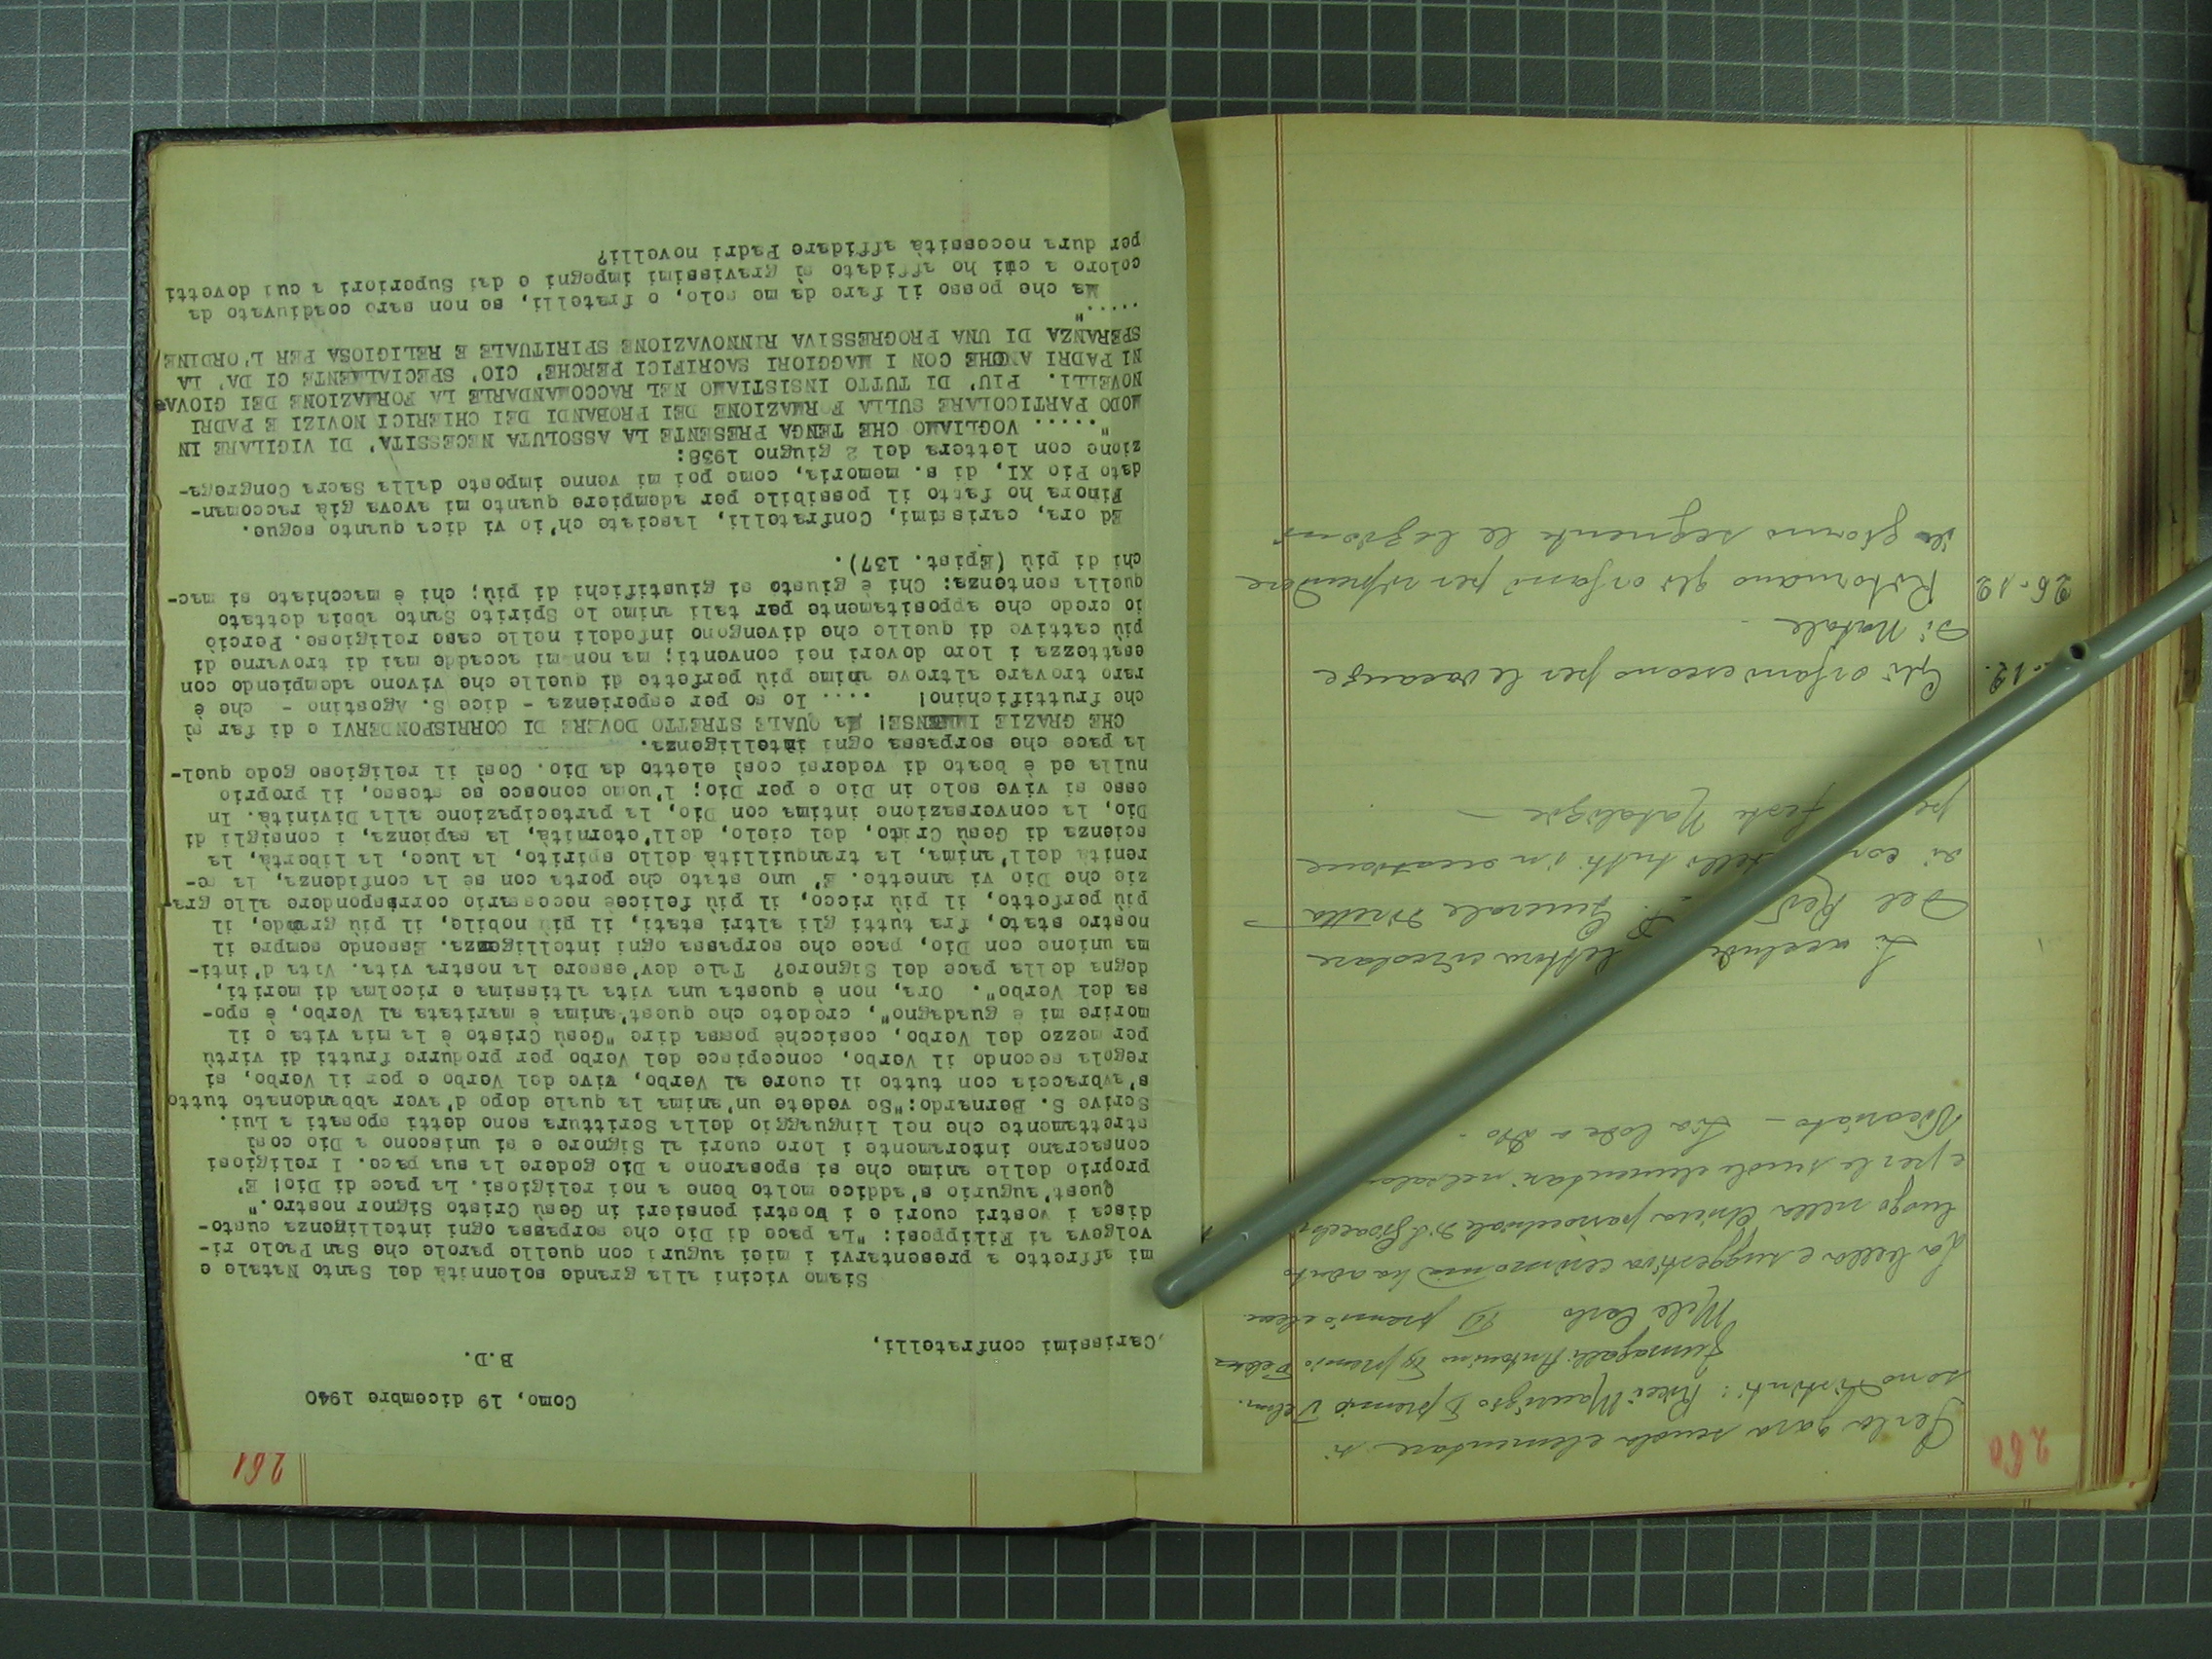 260
Per la gara scuola elementare si
sono distinti: Pozzi Maurizio I premio Velm.
Fumagalli Antonino II premio
Mele Carlo III premio elem.
La bella e suggestiva cerimonia ha avuto
luogo nella Chiesa parrocchiale di S.
e per le scuole elementari nel salone
Vicariato — Sia lode a Dio.
Si acclude lettera circolare
del Rev. P. Generale diretta
ai confratelli tutti in occasione
feste Natalizie —
12. Gli orfani escono per le vacanze
di Natale —
26-12 Ritornano gli orfani per riprendere
il giorno seguente le lezioni
261
Como, 19 dicembre 1940
B.D.
Carissimi confratelli,
Siamo vicini alla grande solennità del Santo Natale e
mi affretto a presentarvi i miei auguri con quelle parole che San Paolo ri-
volgeva ai Filippesi: "La pace di Dio che sorpassa ogni intelligenza custo-
disca i vostri cuori e i vostri pensieri in Gesù Cristo Signor nostro."
Quest'augurio s'addice molto bene a noi religiosi. La pace di Dio! E'
proprio delle anime che si sposarono a Dio godere la sua pace. I religiosi
consacrano interamente i loro cuori al Signore e si uniscono a Dio così
strettamente che nel linguaggio della Scrittura sono detti sposati a Lui.
Scrive S. Bernardo:"Se vedete un'anima la quale dopo d'aver abbandonato tutto
s'abbraccia con tutto il cuore al Verbo, vive del Verbo e per il Verbo, si
regola secondo il Verbo, concepisce del Verbo per produrre frutti di virtù
per mezzo del Verbo, cosicchè possa dire "Gesù Cristo è la mia vita e il
morire mi è guadagno", credete che quest'anima è maritata al Verbo, è spo-
sa del Verbo". Ora, non è questa una vita altissima e ricolma di meriti,
degna della pace del Signore? Tale dev'essere la nostra vita. Vita d'inti-
ma unione con Dio, pace che sorpassa ogni intelligenza. Essendo sempre il
nostro stato, fra tutti gli altri stati, il più nobile, il più grande, il
più perfetto, il più ricco, il più felice è necessario corrispondere alle gra
zie che Dio vi annette. E' uno stato che porta con sè la confidenza, la se-
renità dell'anima, la tranquillità dello spirito, la luce, la libertà, la
scienza di Gesù Cristo, del cielo, dell'eternità, la sapienza, i consigli di
Dio, la conversazione intima con Dio, la partecipazione alla Divinità. In
esso si vive solo in Dio e per Dio; l'uomo conosce se stesso, il proprio
nulla ed è beato di vedersi così eletto da Dio. Così il religioso gode quel-
la pace che sorpassa ogni intelligenza.
CHE GRAZIE IMMENSE! Ma QUALE STRETTO DOVERE DI CORRISPONDERVI e di far sì
che fruttifichino! .... Io so per esperienza - dice S. Agostino - che è
raro trovare altrove anime più perfette di quelle che vivono adempiendo con
esattezza i loro doveri nei conventi; ma non mi accadde mai di trovarne di
più cattive di quelle che divengono infedeli nelle case religiose. Perciò
io credo che appositamente per tali anime lo Spirito Santo abbia dettato
quella sentenza: Chi è giusto si giustifichi di più; chi è macchiato si mac-
chi di più (Epist. 137).
Ed ora, carissimi, Confratelli, lasciate ch'io vi dica quanto segue.
Finora ho fatto il possibile per adempiere quanto mi aveva già raccoman-
dato Pio XI, di s. memoria, come poi mi venne imposto dalla Sacra Congrega-
zione con lettera del 2 giugno 1938:
"..... VOGLIAMO CHE TENGA PRESENTE LA ASSOLUTA NECESSITA' DI VIGILARE IN
MODO PARTICOLARE SULLA FORMAZIONE DEI PROBANDI DEI CHIERICI NOVIZI E PADRI
NOVELLI. PIU' DI TUTTO INSISTIAMO NEL RACCOMANDARLE LA FORMAZIONE DEI GIOVA
NI PADRI ANCHE CON I MAGGIORI SACRIFICI PERCHE' CIO' SPECIALMENTE CI DA' LA
SPERANZA DI UNA PROGRESSIVA RINNOVAZIONE SPIRITUALE E RELIGIOSA PER L'ORDINE
....."
Ma che posso il fare da me solo, o fratelli, se non sarò coadiuvato da
coloro a cui ho affidato sì gravissimi impegni e dai Superiori a cui dovetti
per dura necessità affidare Padri novelli?